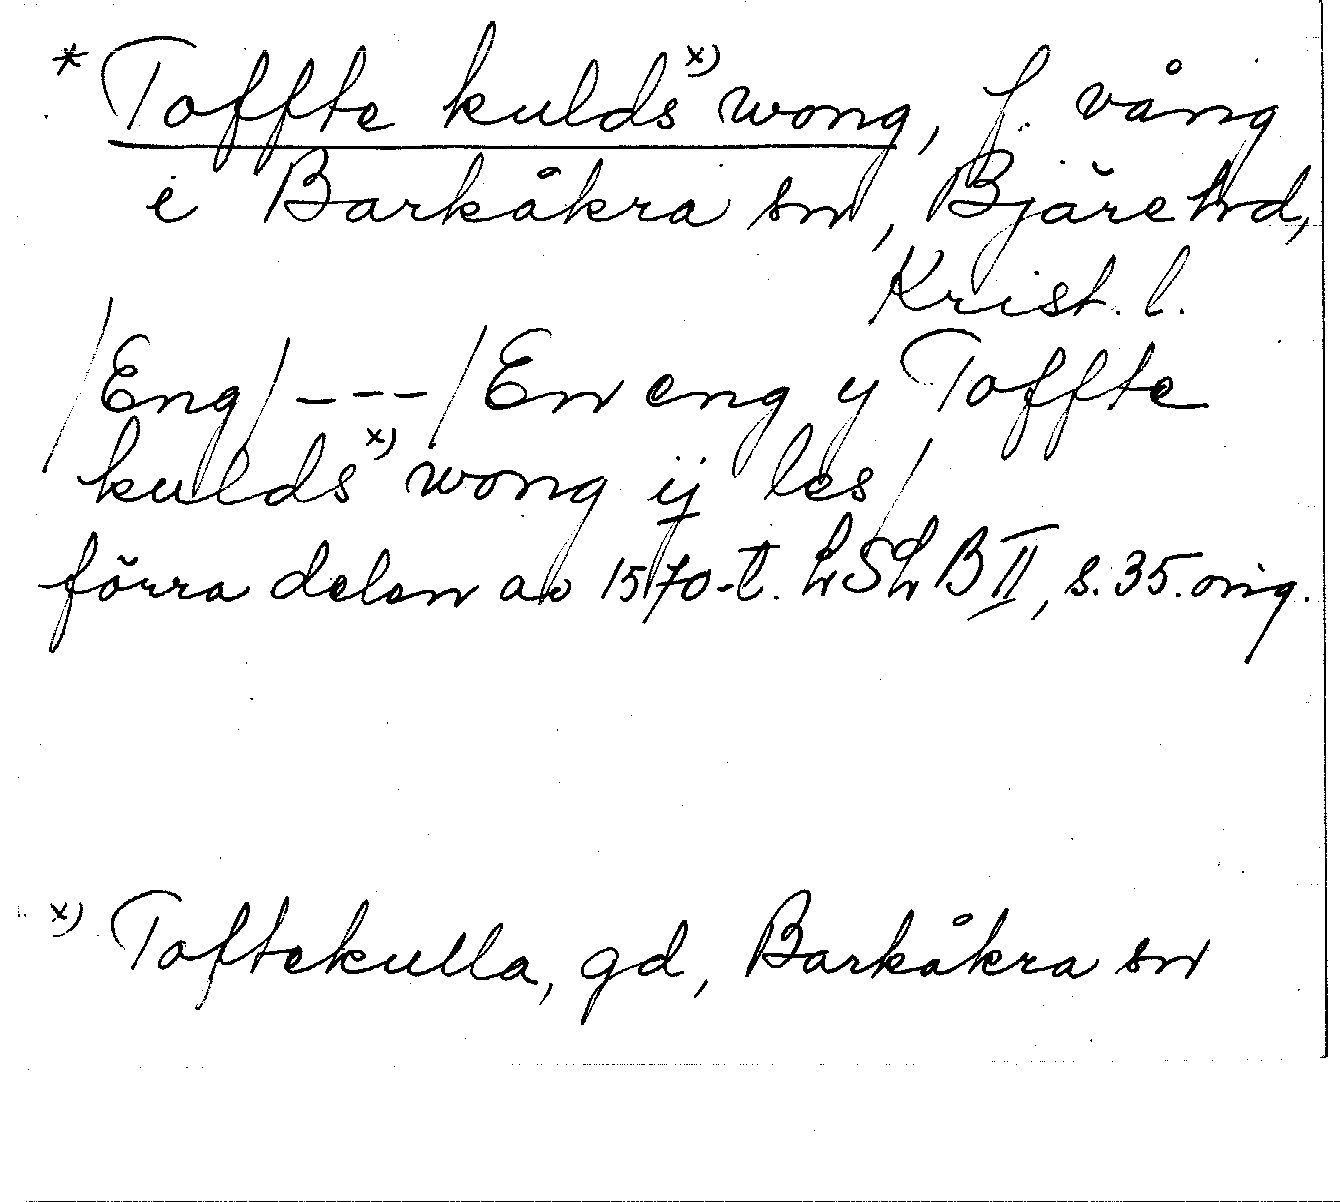 * Toffte kulds x) wong, f. vång
i Barkåkra sn, Bjäre hd,
Krist. l.
/Eng/ --- /En eng y Toffte
kulds x) wong ij les/
förra delen av 1570-t. LSLB II, s. 35. orig.
x) Toftekulla, gd, Barkåkra sn